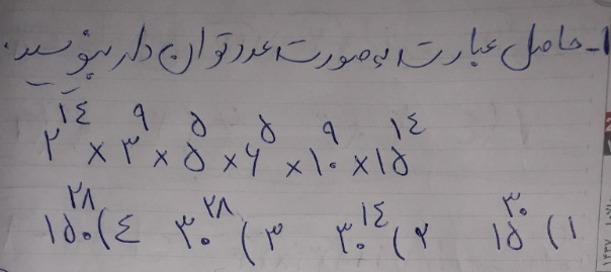 ۱- حاصل عبارت به صورت عدد توان دار بنویسید.
۲^۱۴ × ۳^۹ × ۵^۵ × ۶^۵ × ۱۰^۹ × ۱۵^۱۴
۱) ۱۵^۳۰ ۲) ۳۰^۱۴ ۳) ۳۰^۲۸ ۴) ۱۵۰^۲۸